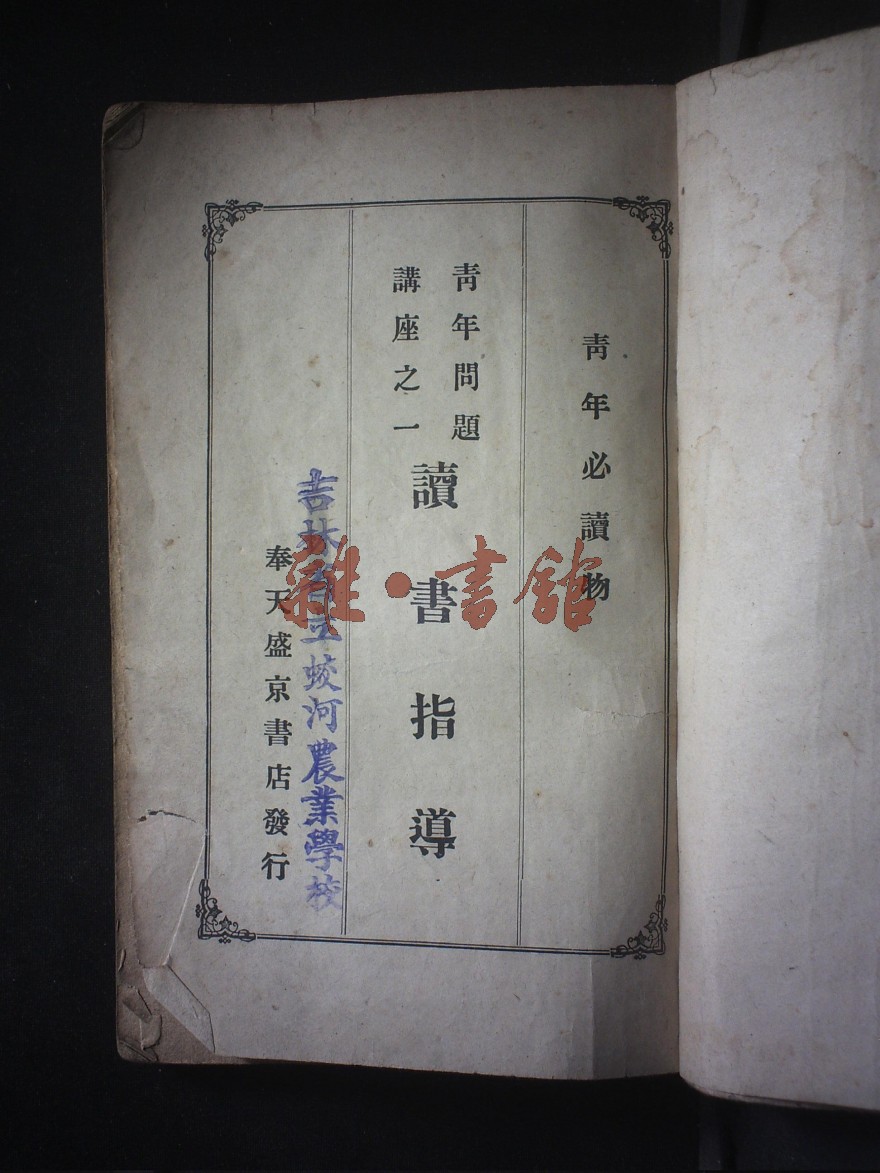 靑年必讀物
靑年問題
講座之一
讀書指導
吉林省立蛟河農業學校
奉天盛京書店發行
雜·書館